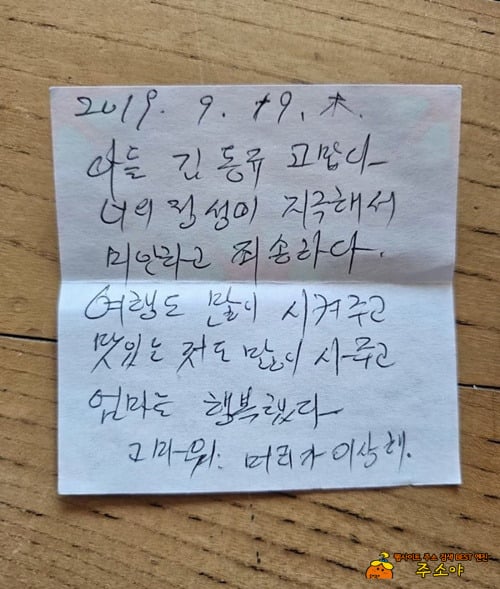 2019. 9. 19. 木.
아들 김동규 고맙다
너의 정성이 지극해서
미안하고 죄송하다.
여행도 많이 시켜주고
맛있는 것도 많이 사주고
엄마는 행복했다
고마워. 머리가 이상해.
웹사이트 주소 검색 BEST 엔진
주소야